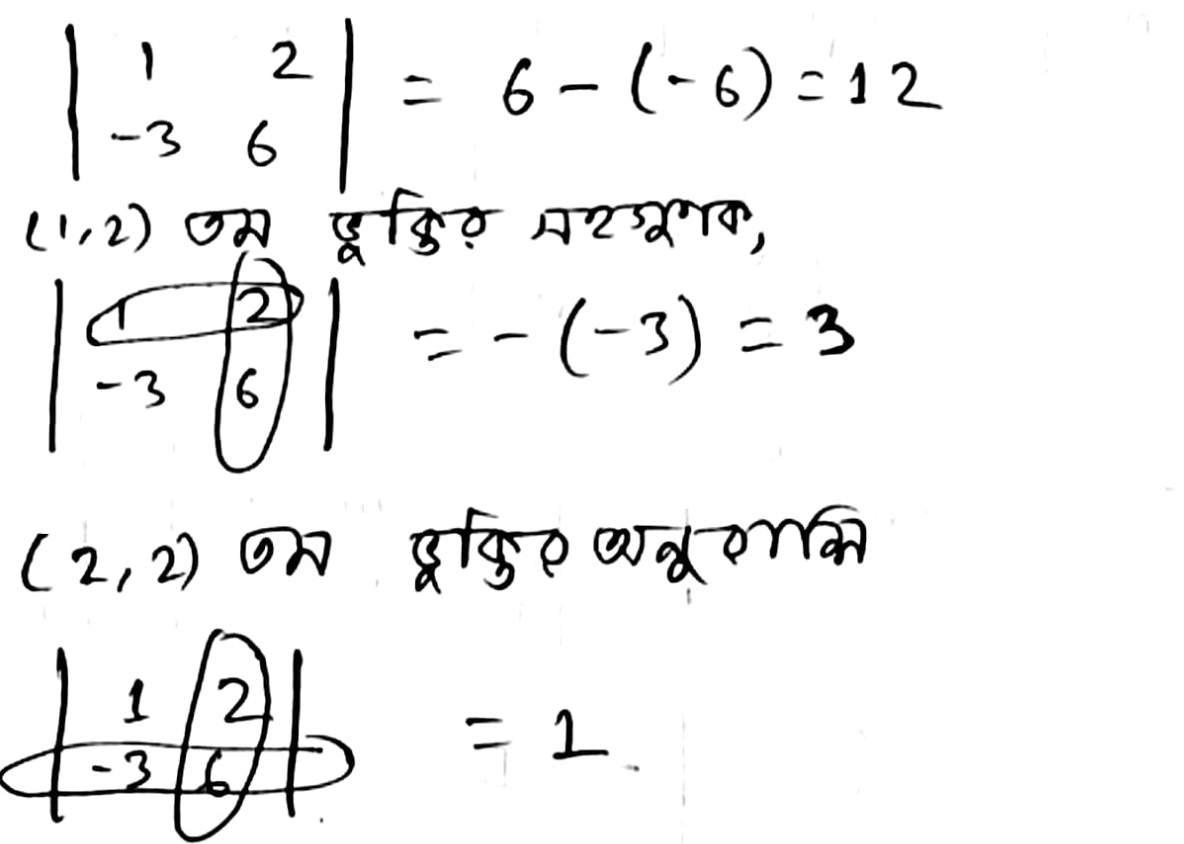 | 1 2 | = 6 - (-6) = 12
| -3 6 |
(1,2) তম ভুক্তির সহগুণক,
| 1 2 | = - (-3) = 3
| -3 6 |
(2,2) তম ভুক্তির অনুরাশি
| 1 2 | = 1
| -3 6 |